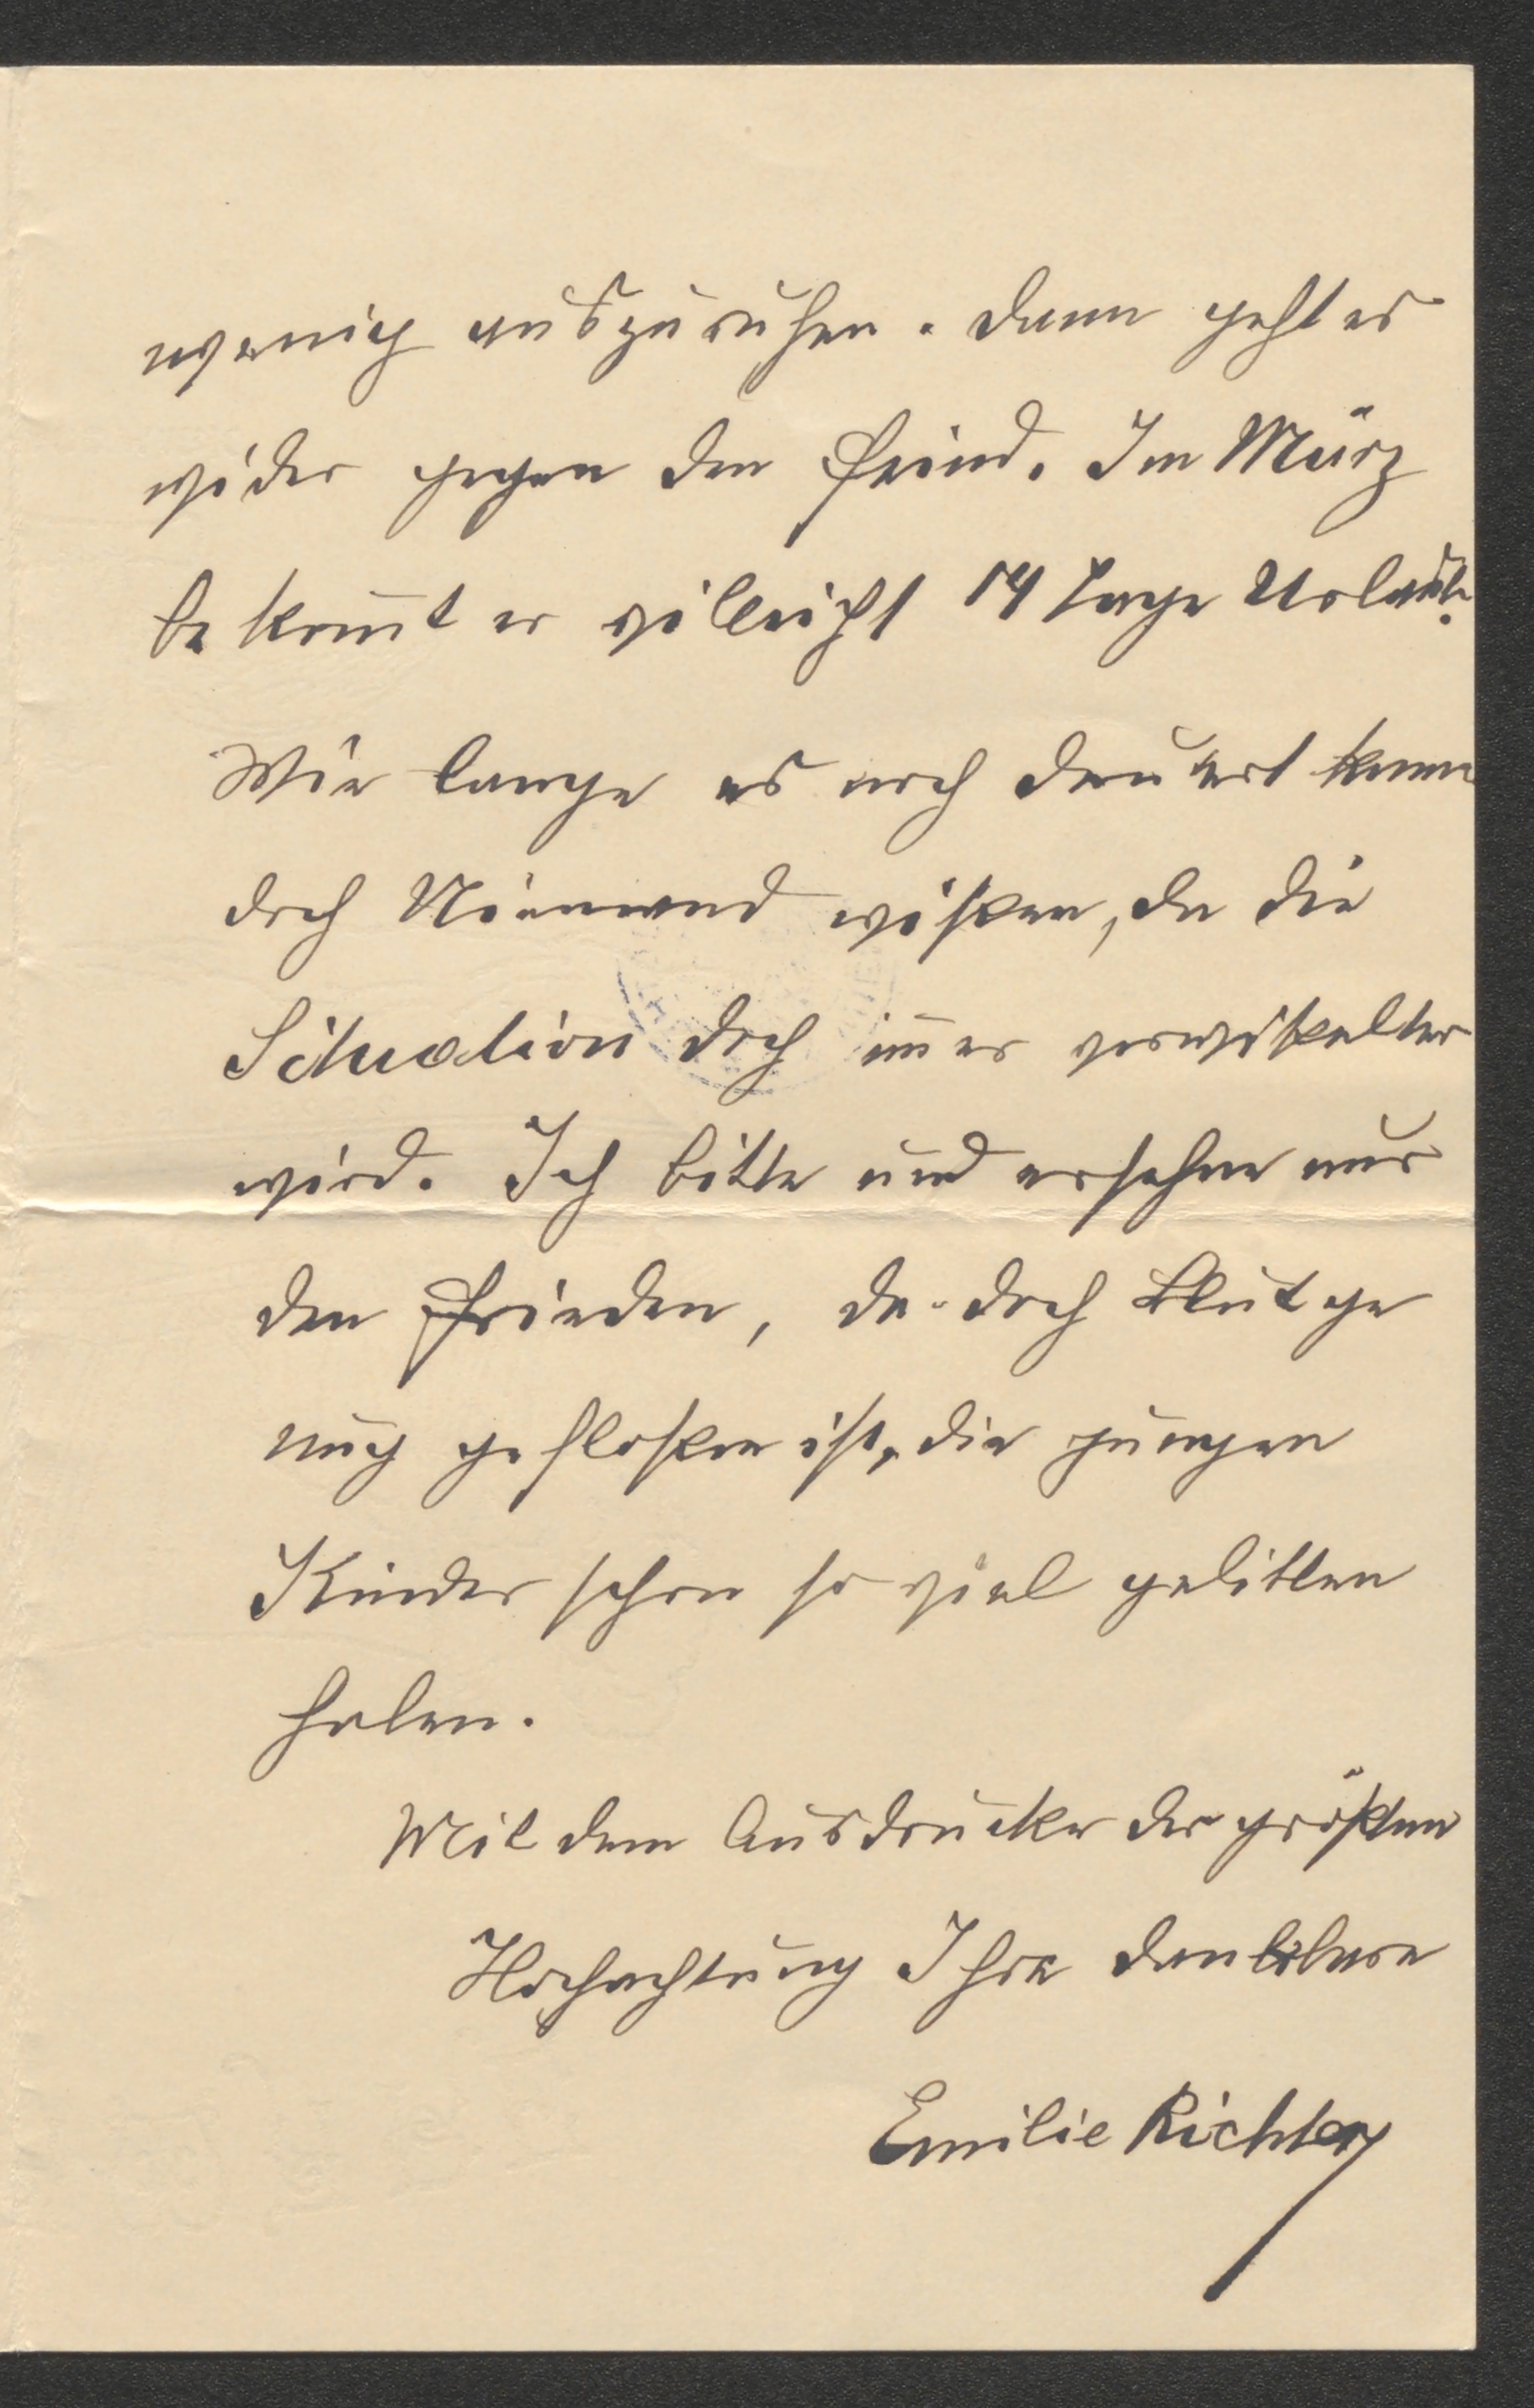 wenig auszuruhen. Dann geht es
wider gegen den Feind. Im März
bekom̅t er villeicht 14 Tage Urlaub.
Wie lange es noch dauert kann
doch Niemand wißen, da die
Situation doch im̅er verwikelter
wird. Ich bitte und ersehne nur
den Frieden, da doch Blut ge
nug gefloßen ist, die jungen
Kinder schon so viel gelitten
haben.
Mit dem Ausdrucke der größten
Hochachtung Ihre dankbare
Emilie Richter